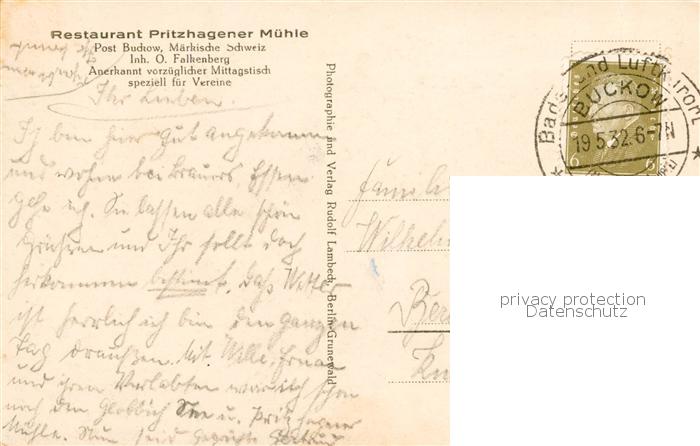 Restaurant Pritzhagener Mühle
Post Buckow, Märkische Schweiz
Inh. O. Falkenberg
Anerkannt vorzüglicher Mittagstisch
speziell für Vereine
Ihr Lieben.
Ich bin hier gut angekommen
und wohne bei Brauers Essen
gehe ich. Sie lassen alle schön
Grüßen und Ihr sollt doch
herkommen bestimmt. Das Wetter
ist herrlich ich bin den ganzen
Tag draußen. Mit Wille,
und ihren Verlobten war ich schon
nach den See u. Pritzhagener
Mühle. Nun seid gegrüßt
Photographie und Verlag Rudolf Lambeck, Berlin-Grunewald
Bad- und Luftkurort
BUCKOW
19.5.32.6-7N
6 6
Familie
Wilhelm
Ber
privacy protection
Datenschutz